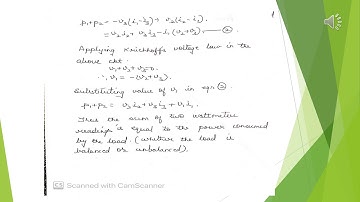 p₁+p₂ = -v₂(i₁-i₃) + v₃(i₃-i₁).
= v₂i₂ + v₃i₃ - i₁(v₂+v₃). — ②
Applying Kirchhoff's voltage law in the
above ckt.
v₁+v₂+v₃=0.
∴ v₁ = -(v₂+v₃).
Substituting value of v₁ in eqn ②
p₁+p₂ = v₂i₂ + v₃i₃ + v₁i₁.
Thus the sum of two wattmeter
readings is equal to the power consumed
by the load. (whether the load is
balanced or unbalanced).
CS Scanned with CamScanner